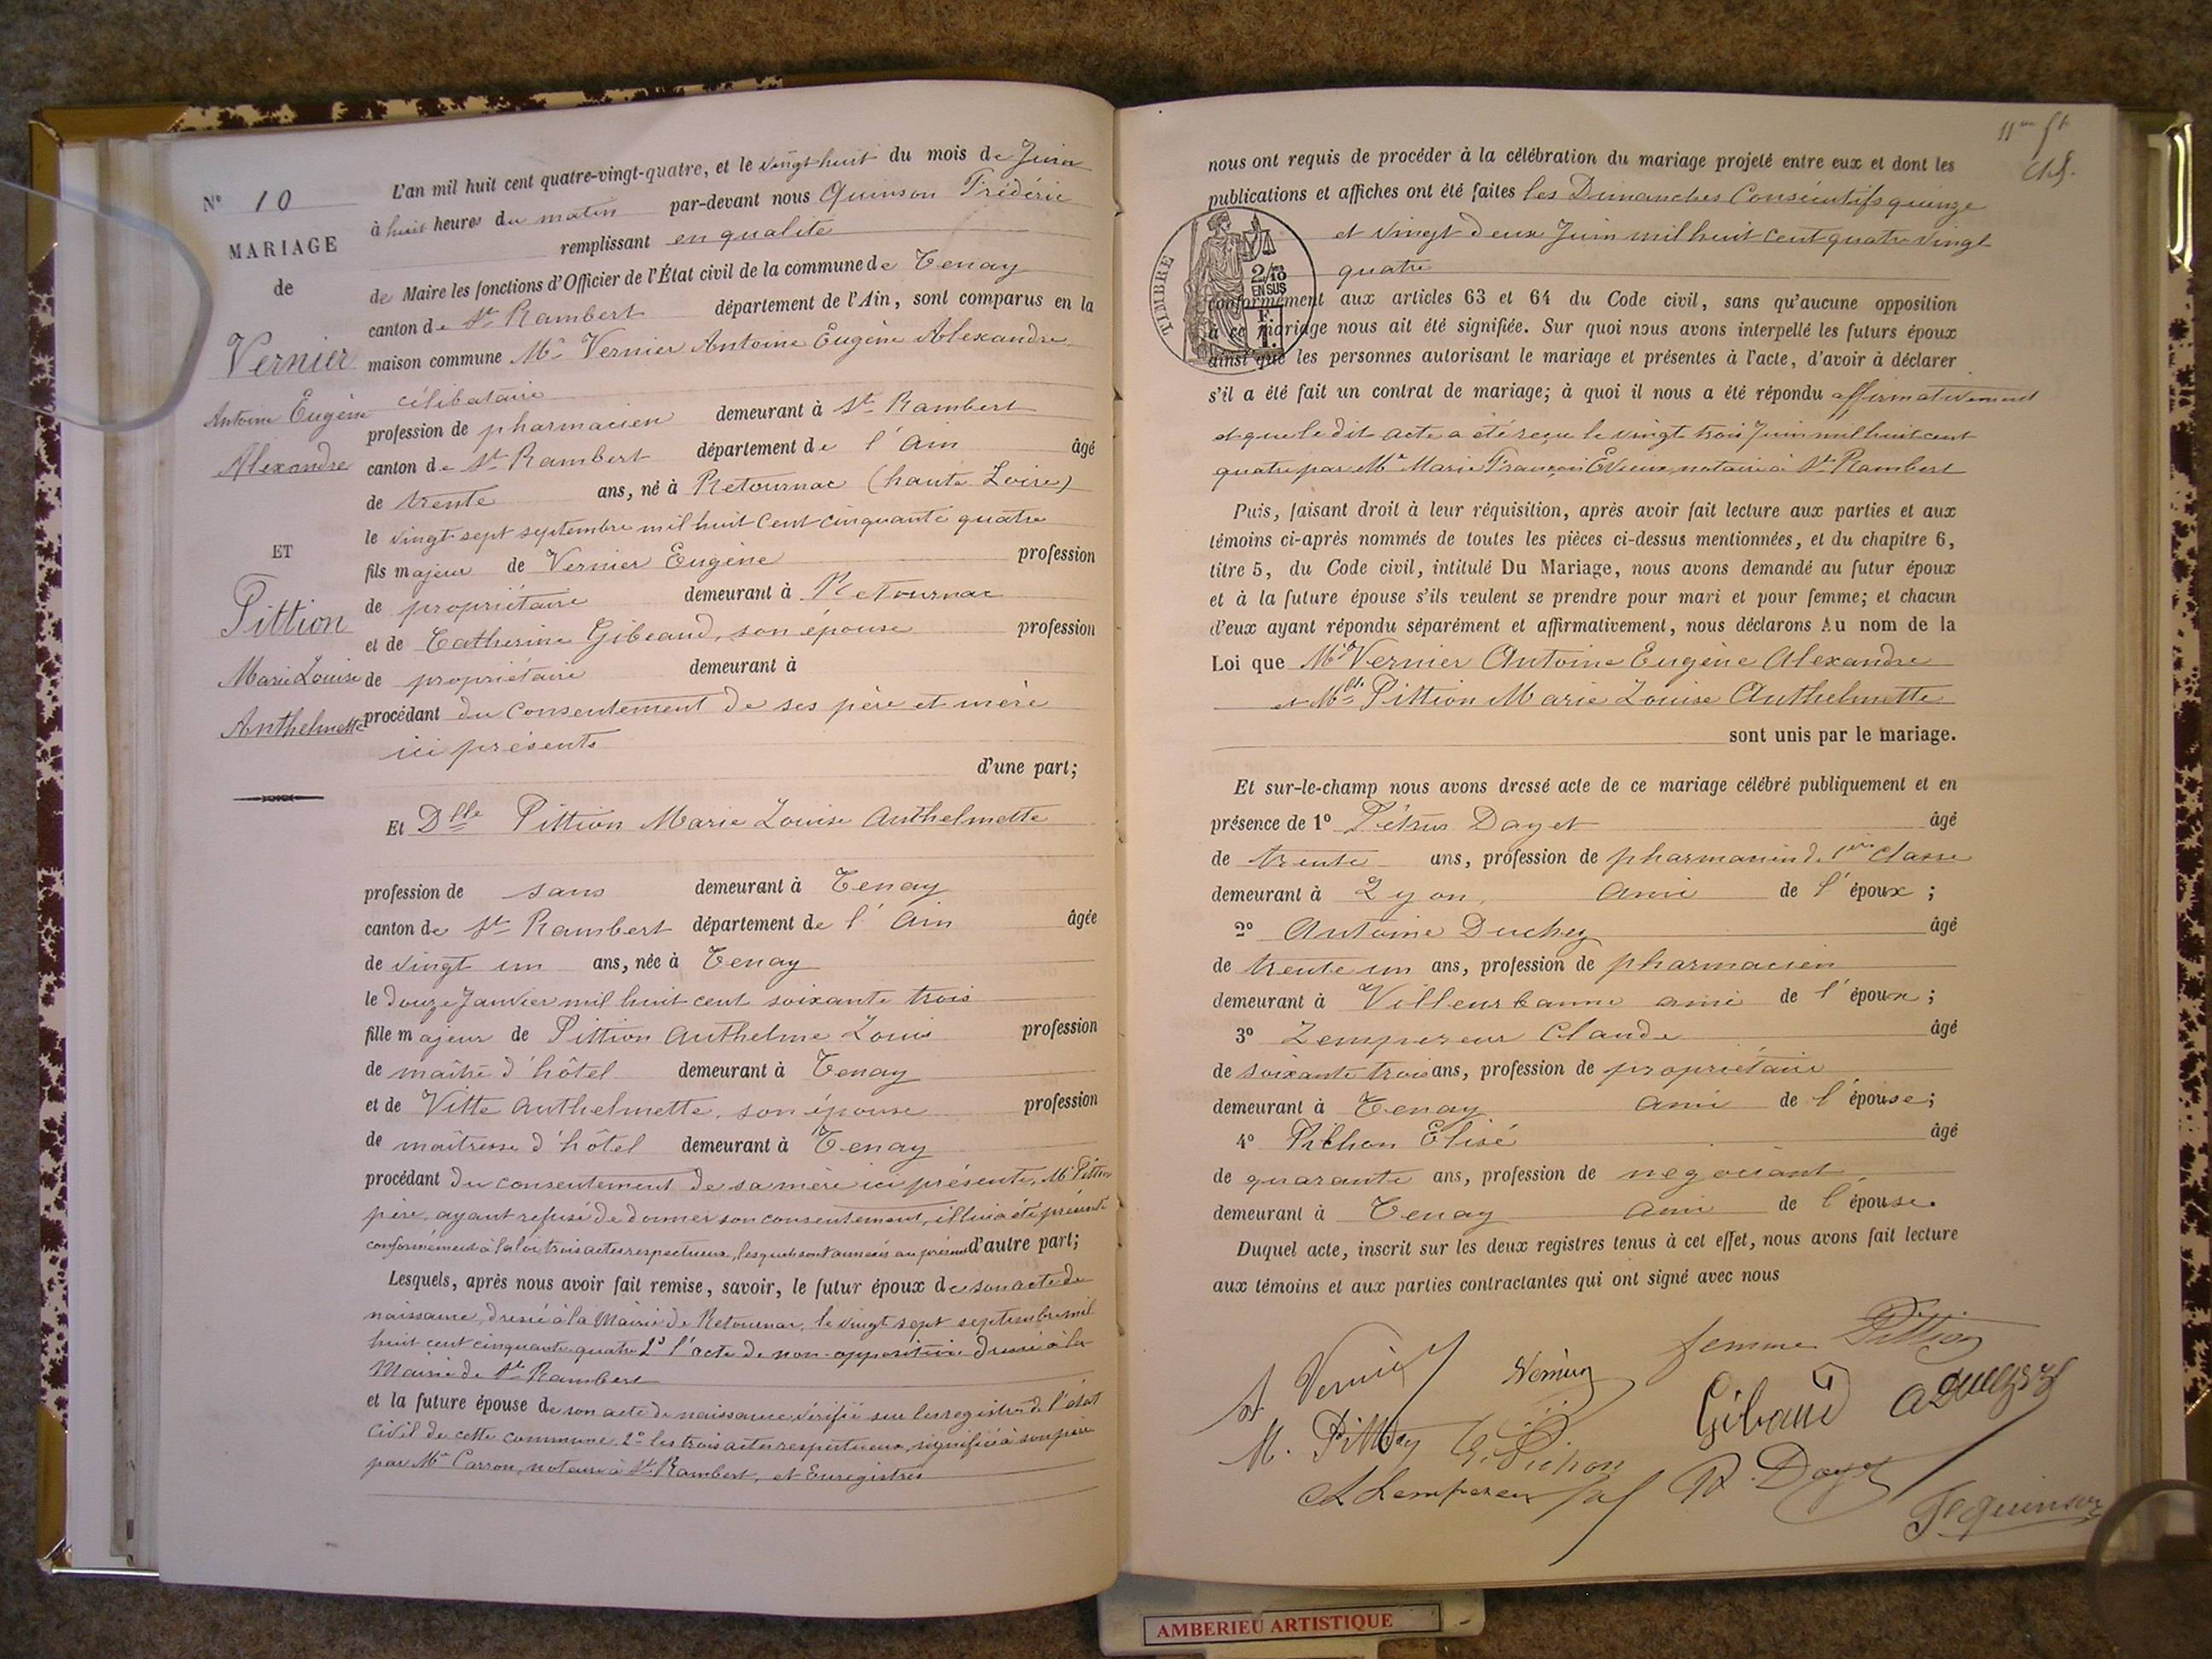 N° 10
MARIAGE
de
Vernier
Antoine Eugène
Alexandre
ET
Pittion
Marie Louise
Anthelmette
L'an mil huit cent quatre-vingt-quatre, et le vingt huit du mois de Juin
à huit heures du matin par-devant nous Quinson Frédéric
remplissant en qualité
de Maire les fonctions d'Officier de l'État civil de la commune de Tenay
canton de St Rambert département de l'Ain, sont comparus en la
maison commune Mr Vernier Antoine Eugène Alexandre
célibataire
profession de pharmacien demeurant à St Rambert
canton de St Rambert département de l'Ain âgé
de trente ans, né à Retournac (haute Loire)
le vingt sept septembre mil huit cent cinquante quatre
fils majeur de Vernier Eugène profession
de propriétaire demeurant à Retournac
et de Catherine Gibeaud, son épouse profession
de propriétaire demeurant à
procédant du consentement de ses père et mère
ici présents
d'une part;
Et Dlle Pittion Marie Louise Anthelmette
profession de sans demeurant à Tenay
canton de St Rambert département de l'Ain âgée
de vingt un ans, née à Tenay
le douze Janvier mil huit cent soixante trois
fille majeur de Pittion Anthelme Louis profession
de maître d'hôtel demeurant à Tenay
et de Vitte Anthelmette, son épouse profession
de maîtresse d'hôtel demeurant à Tenay
procédant du consentement de sa mère ici présente, Mr Pittion
père, ayant refusé de donner son consentement, il lui a été présenté
conformément à la loi, trois actes respectueux, lesquels sont annexés au présent d'autre part;
Lesquels, après nous avoir fait remise, savoir, le futur époux de son acte de
naissance, dressé à la Mairie de Retournac, le vingt sept septembre mil
huit cent cinquante quatre 2° l'acte de non-opposition dressé à la
Mairie de St Rambert
et la future épouse de son acte de naissance vérifié sur les registres de l'état
civil de cette commune, 2° les trois actes respectueux, signifiés à son père
par Me Carron, notaire à St Rambert, et Enregistrés
11me ft
nous ont requis de procéder à la célébration du mariage projeté entre eux et dont les
publications et affiches ont été faites les Dimanches Consécutifs quinze
et vingt deux Juin mil huit cent quatre vingt
quatre
TIMBRE
2/10
EN SUS
F.
1.
conformément aux articles 63 et 64 du Code civil, sans qu'aucune opposition
à ce mariage nous ait été signifiée. Sur quoi nous avons interpellé les futurs époux
ainsi que les personnes autorisant le mariage et présentes à l'acte, d'avoir à déclarer
s'il a été fait un contrat de mariage; à quoi il nous a été répondu affirmativement
et que le dit acte a été reçu le vingt trois Juin mil huit cent
quatre par Me Marie François notaire à St Rambert
Puis, faisant droit à leur réquisition, après avoir fait lecture aux parties et aux
témoins ci-après nommés de toutes les pièces ci-dessus mentionnées, et du chapitre 6,
titre 5, du Code civil, intitulé Du Mariage, nous avons demandé au futur époux
et à la future épouse s'ils veulent se prendre pour mari et pour femme; et chacun
d'eux ayant répondu séparément et affirmativement, nous déclarons Au nom de la
Loi que Mr Vernier Antoine Eugène Alexandre
et Mlle Pittion Marie Louise Anthelmette
sont unis par le mariage.
Et sur-le-champ nous avons dressé acte de ce mariage célébré publiquement et en
présence de 1° Pétrus Dayet âgé
de trente ans, profession de pharmacien de 1ère classe
demeurant à Lyon, ami de l'époux ;
2° Antoine Duchez âgé
de trente un ans, profession de pharmacien
demeurant à Villeurbanne ami de l'époux ;
3° Lempereur Claude âgé
de soixante trois ans, profession de propriétaire
demeurant à Tenay ami de l'épouse;
4° Pichon Elisé âgé
de quarante ans, profession de négociant
demeurant à Tenay ami de l'épouse.
Duquel acte, inscrit sur les deux registres tenus à cet effet, nous avons fait lecture
aux témoins et aux parties contractantes qui ont signé avec nous
A. Vernier Vernier femme Pittion
M. Pittion E. Pichon Gibaud A Duchez
Cl Lempereur P. Dayet Fc Quinson
AMBERIEU ARTISTIQUE